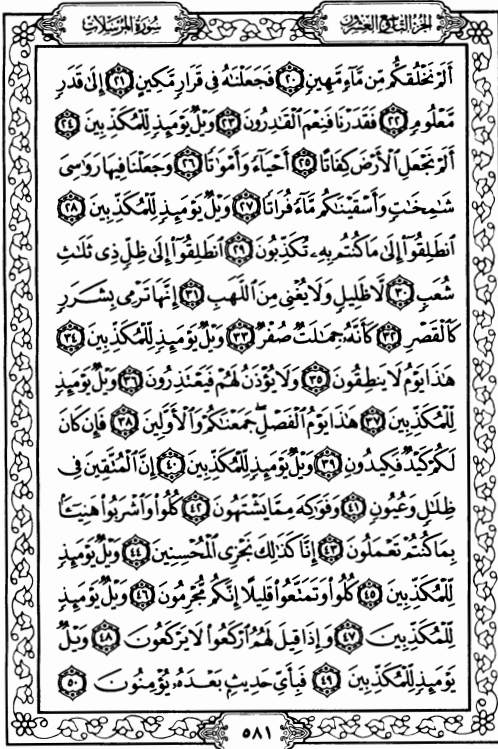 سورة المرسلات
الجزء التاسع والعشرين
أَلَمْ نَخْلُقكُّم مِّن مَّآءٍ مَّهِينٍ ٢٠ فَجَعَلْنَٰهُ فِى قَرَارٍ مَّكِينٍ ٢١ إِلَىٰ قَدَرٍ
مَّعْلُومٍ ٢٢ فَقَدَرْنَا فَنِعْمَ ٱلْقَٰدِرُونَ ٢٣ وَيْلٌ يَوْمَئِذٍ لِّلْمُكَذِّبِينَ ٢٤
أَلَمْ نَجْعَلِ ٱلْأَرْضَ كِفَاتًا ٢٥ أَحْيَآءً وَأَمْوَٰتًا ٢٦ وَجَعَلْنَا فِيهَا رَوَٰسِىَ
شَٰمِخَٰتٍ وَأَسْقَيْنَٰكُم مَّآءً فُرَاتًا ٢٧ وَيْلٌ يَوْمَئِذٍ لِّلْمُكَذِّبِينَ ٢٨
ٱنطَلِقُوٓا۟ إِلَىٰ مَا كُنتُم بِهِۦ تُكَذِّبُونَ ٢٩ ٱنطَلِقُوٓا۟ إِلَىٰ ظِلٍّ ذِى ثَلَٰثِ
شُعَبٍ ٣٠ لَّا ظَلِيلٍ وَلَا يُغْنِى مِنَ ٱللَّهَبِ ٣١ إِنَّهَا تَرْمِى بِشَرَرٍ
كَٱلْقَصْرِ ٣٢ كَأَنَّهُۥ جِمَٰلَتٌ صُفْرٌ ٣٣ وَيْلٌ يَوْمَئِذٍ لِّلْمُكَذِّبِينَ ٣٤
هَٰذَا يَوْمُ لَا يَنطِقُونَ ٣٥ وَلَا يُؤْذَنُ لَهُمْ فَيَعْتَذِرُونَ ٣٦ وَيْلٌ يَوْمَئِذٍ
لِّلْمُكَذِّبِينَ ٣٧ هَٰذَا يَوْمُ ٱلْفَصْلِ ۖ جَمَعْنَٰكُمْ وَٱلْأَوَّلِينَ ٣٨ فَإِن كَانَ
لَكُمْ كَيْدٌ فَكِيدُونِ ٣٩ وَيْلٌ يَوْمَئِذٍ لِّلْمُكَذِّبِينَ ٤٠ إِنَّ ٱلْمُتَّقِينَ فِى
ظِلَٰلٍ وَعُيُونٍ ٤١ وَفَوَٰكِهَ مِمَّا يَشْتَهُونَ ٤٢ كُلُوا۟ وَٱشْرَبُوا۟ هَنِيٓـًٔۢا
بِمَا كُنتُمْ تَعْمَلُونَ ٤٣ إِنَّا كَذَٰلِكَ نَجْزِى ٱلْمُحْسِنِينَ ٤٤ وَيْلٌ يَوْمَئِذٍ
لِّلْمُكَذِّبِينَ ٤٥ كُلُوا۟ وَتَمَتَّعُوا۟ قَلِيلًا إِنَّكُم مُّجْرِمُونَ ٤٦ وَيْلٌ يَوْمَئِذٍ
لِّلْمُكَذِّبِينَ ٤٧ وَإِذَا قِيلَ لَهُمُ ٱرْكَعُوا۟ لَا يَرْكَعُونَ ٤٨ وَيْلٌ
يَوْمَئِذٍ لِّلْمُكَذِّبِينَ ٤٩ فَبِأَىِّ حَدِيثٍۭ بَعْدَهُۥ يُؤْمِنُونَ ٥٠
٥٨١